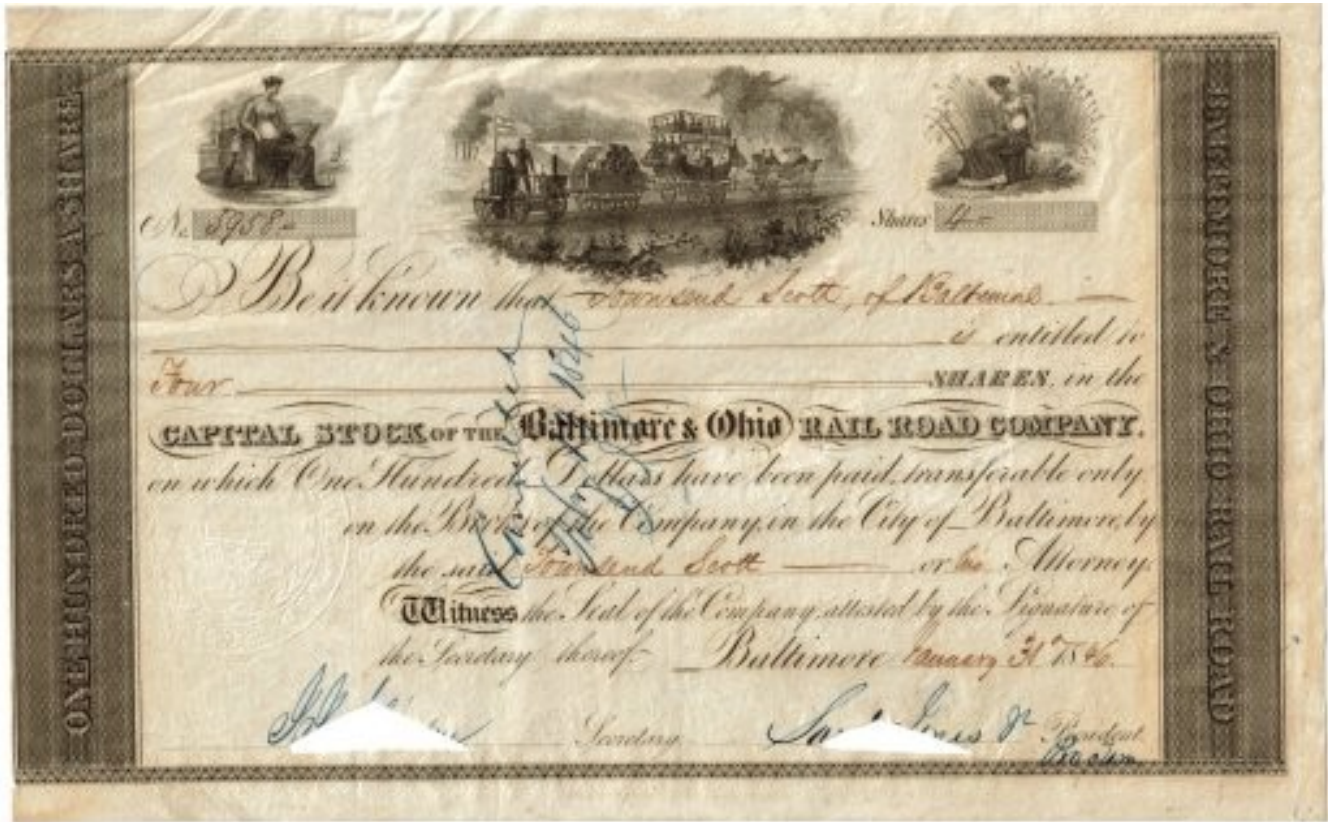 ONE HUNDRED DOLLARS A SHARE
No. 5958-
Shares 4-
Be it known that Townsend Scott, of Baltimore
is entitled to
Four SHARES, in the
CAPITAL STOCK OF THE Baltimore & Ohio RAIL ROAD COMPANY.
on which One Hundred Dollars have been paid, transferable only
on the Books of the Company, in the City of Baltimore, by
the said Townsend Scott or his Attorney.
Witness the Seal of the Company, attested by the Signature of
the Secretary thereof. Baltimore January 31st 1846.
Secretary
Saml Jones Jr President
pro tem
Cancelled
1846
BALTIMORE & OHIO RAIL ROAD